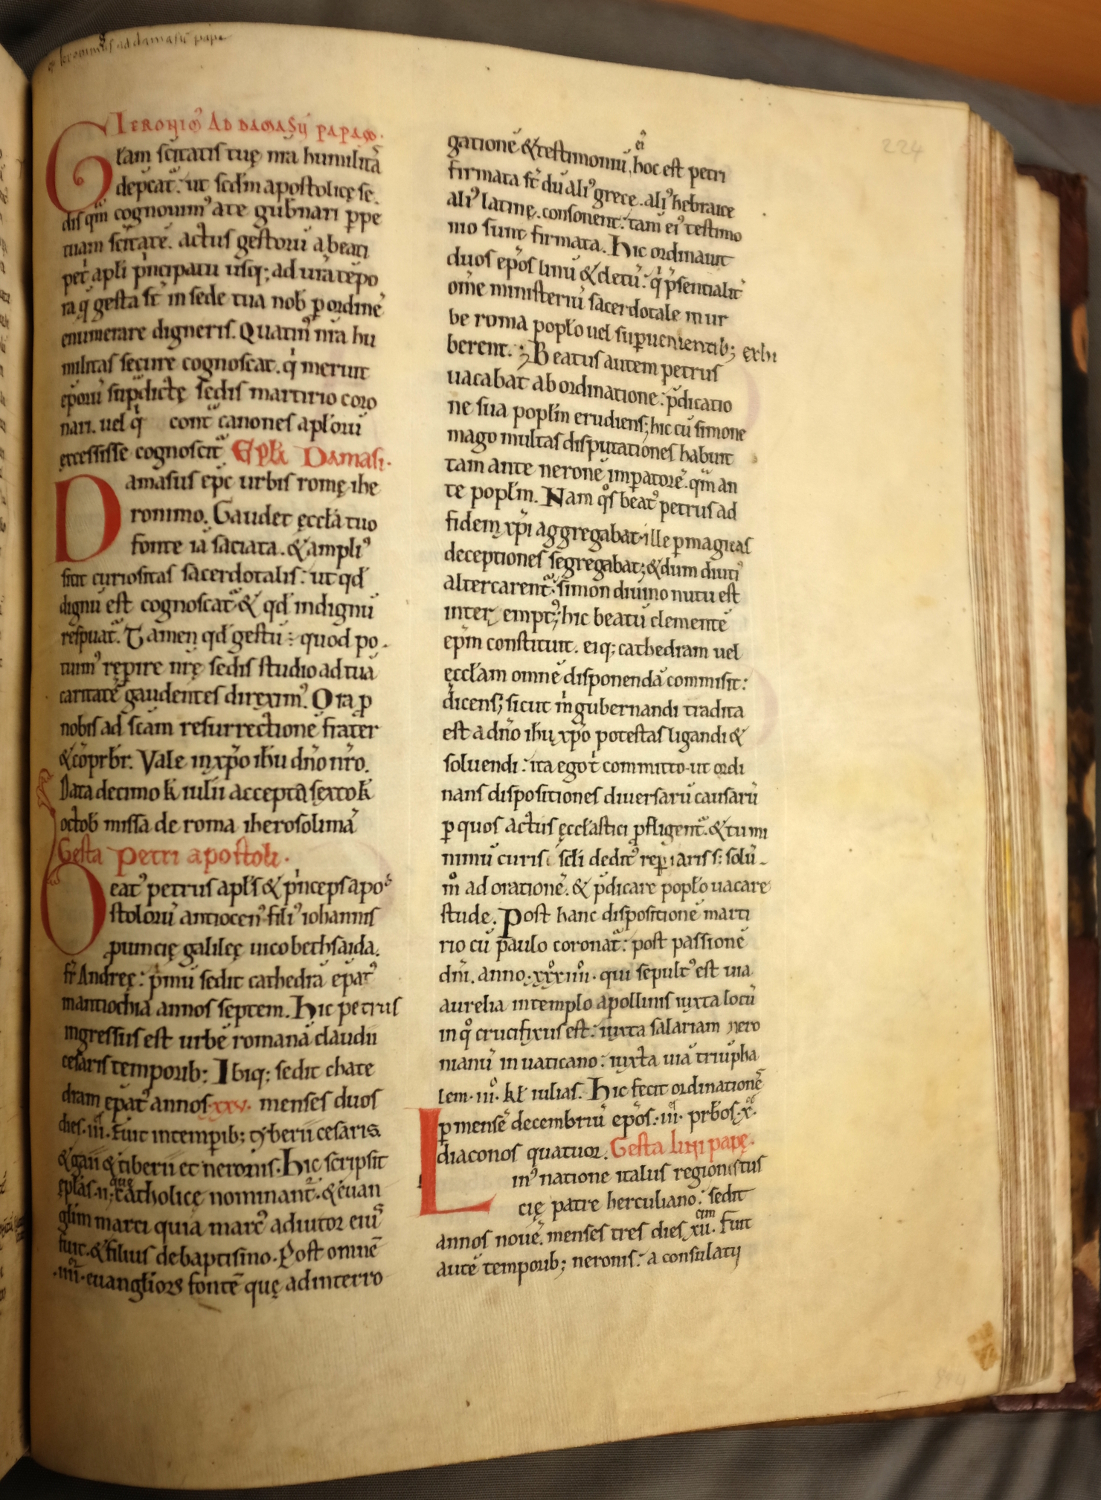 Ieronim' ad damasū papam
IERONIM' AD DAMASŪ PAPAM.
Glam scitatis tuę nra humilitā
dep̄cat᷑. ut scdm apostolicę se
dis quā cognouim' a te gubnari p̱pe
tuam scitatē. actus gestorū a beati
petri apli principatu usq; ad urā tēpo
ra q̨ gesta st̄ in sede tua nob p̱ ordinē
enumerare digneris. Quatin' nra hu
militas secure cognoscat. q̇ meruit
epōrū supdictę sedis martirio coro
nari. uel q̇ cont᷑ canones aplorū
excessisse cognoscit᷑. Epla Damasi.
Damasus epc urbis romę ihe
ronimo. Gaudet ęccla tuo
fonte iā saciata. & ampli'
sitit curiositas sacerdotalis: ut qd
dignū est cognoscat᷑. & qd indignū
respuat᷑. Tamen qd gestū : quod po
tuim' rep̱ire nrę sedis studio ad tuā
caritatē gaudentes direxim'. Ora p̱
nobis ad scam resurrectionē frater
& cōprbr. Vale in xp̄o ihū dn̄o nr̄o.
Data decimo k̄ iulii accepta sexto k̄
octob missa de roma iherosolimā
Gesta Petri apostoli.
Beat' petrus apls & princeps apo
stolorū antiocen' fili' iohannis
puincię galileę uico bethsaida.
fr Andreę: p̄mū sedit cathedrā epat'
in antiochia annos septem. Hic petrus
ingressus est urbē romanā claudii
cesaris temporib: Ibiq; sedit cathe
dram epat' annos. xxv. menses duos
dies .iii. fuit in temp̱ib; tyberii cesaris
& gaii & tiberii et neronis. Hic scripsit
eplas .ii. que catholicę nominant᷑. & euan
glim marci quia marc' aditor eiu'
fuit. & filius de baptismo. Post omnē
.iiii. euangliorꝝ fontē quę ad interro
gationē & testimoniū ei' hoc est petri
firmata st̄ dū ali' grece. ali' hebraice
ali' latine. consonent: tam̄ ei' testimo
nio sunt firmata. Hic ordinauit
duos epōs linū & cletū: q̇ p̄sentialit᷑
omē ministeriū sacerdotale in ur
be roma poplo uel sup̱uenientib; exhi
berent.; Beatus autem petrus
uacabat ab ordinatione: p̄dicatio
ne sua poplm erudiens; hic cū simone
mago multas disputationes habuit
tam ante neronē imp̱atorē. qm̄ an
te poplm. Nam q̊s beat' petrus ad
fidem xp̄i aggregabat. ille p̱ magicas
deceptiones segregabat; & dum diuti'
altercarent᷑. simon diuino nutu est
interemptꝰ; hic beatū clementē
ep̄m constituit. eiq; cathedram uel
ęcclam omnē disponendā commisit:
dicens; sicut m̄ gubernandi tradita
est a dn̄o ihū xp̄o potestas ligandi &
soluendi: ita ego t̄ committo. ut ordi
nans dispositiones diuersarū causarū
p̱ quos actus ęcclastici p̱fligent᷑. & tu mi
nimū curis scli dedit' rep̱iaris s: solū
m̊ ad orationē. & p̄dicare poplo uacare
stude. Post hanc dispositionē marti
rio cū paulo coronat᷑: post passionē
dn̄i. anno. xxxiiii. qui sepult' est uia
aurelia in templo apollinis iuxta locū
in q̊ crucifixus est: iuxta salariam nero
nianū in uaticano: iuxta uiā triūpha
lem. iii. kl iulias. Hic fecit ordinationē
p̱ mensē decembriū epōs. iii. prbōs. x.
diaconos quatuor. Gesta lini papę.
Lin' natione italus regionis tus
cię patre herculiano: sedit
annos nouē. menses tres dies xii. Fuit
autē temporib; neronis: a consulatu
224